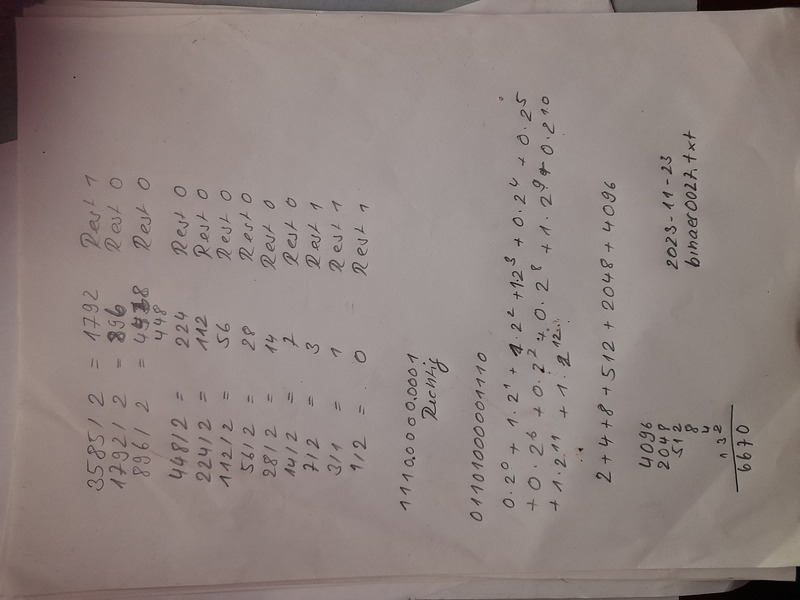 3585/2 = 1792 Rest 1
1792/2 = 896 Rest 0
896/2 = 448 Rest 0
448
448/2 = 224 Rest 0
224/2 = 112 Rest 0
112/2 = 56 Rest 0
56/2 = 28 Rest 0
28/2 = 14 Rest 0
14/2 = 7 Rest 0
7/2 = 3 Rest 1
3/1 = 1 Rest 1
1/2 = 0 Rest 1
111000000001
Richtig
01101000001110
0·2⁰ + 1·2¹ + 1·2² + 1·2³ + 0·2⁴ + 0·2⁵
+ 0·2⁶ + 0·2⁷ + 0·2⁸ + 1·2⁹ + 0·2¹⁰
+ 1·2¹¹ + 1·2¹²
2+4+8+512+2048+4096
4096
2048
512
8
4
1 3 2
6670
2023-11-23
binaer0027.txt